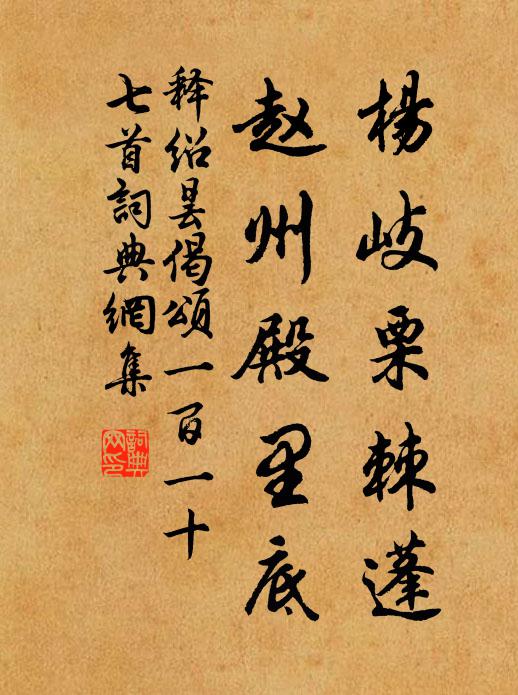 楊岐栗棘蓬
赵州殿里底
释绍昙偈頌一百一十
七首詞典網集
詞典网印